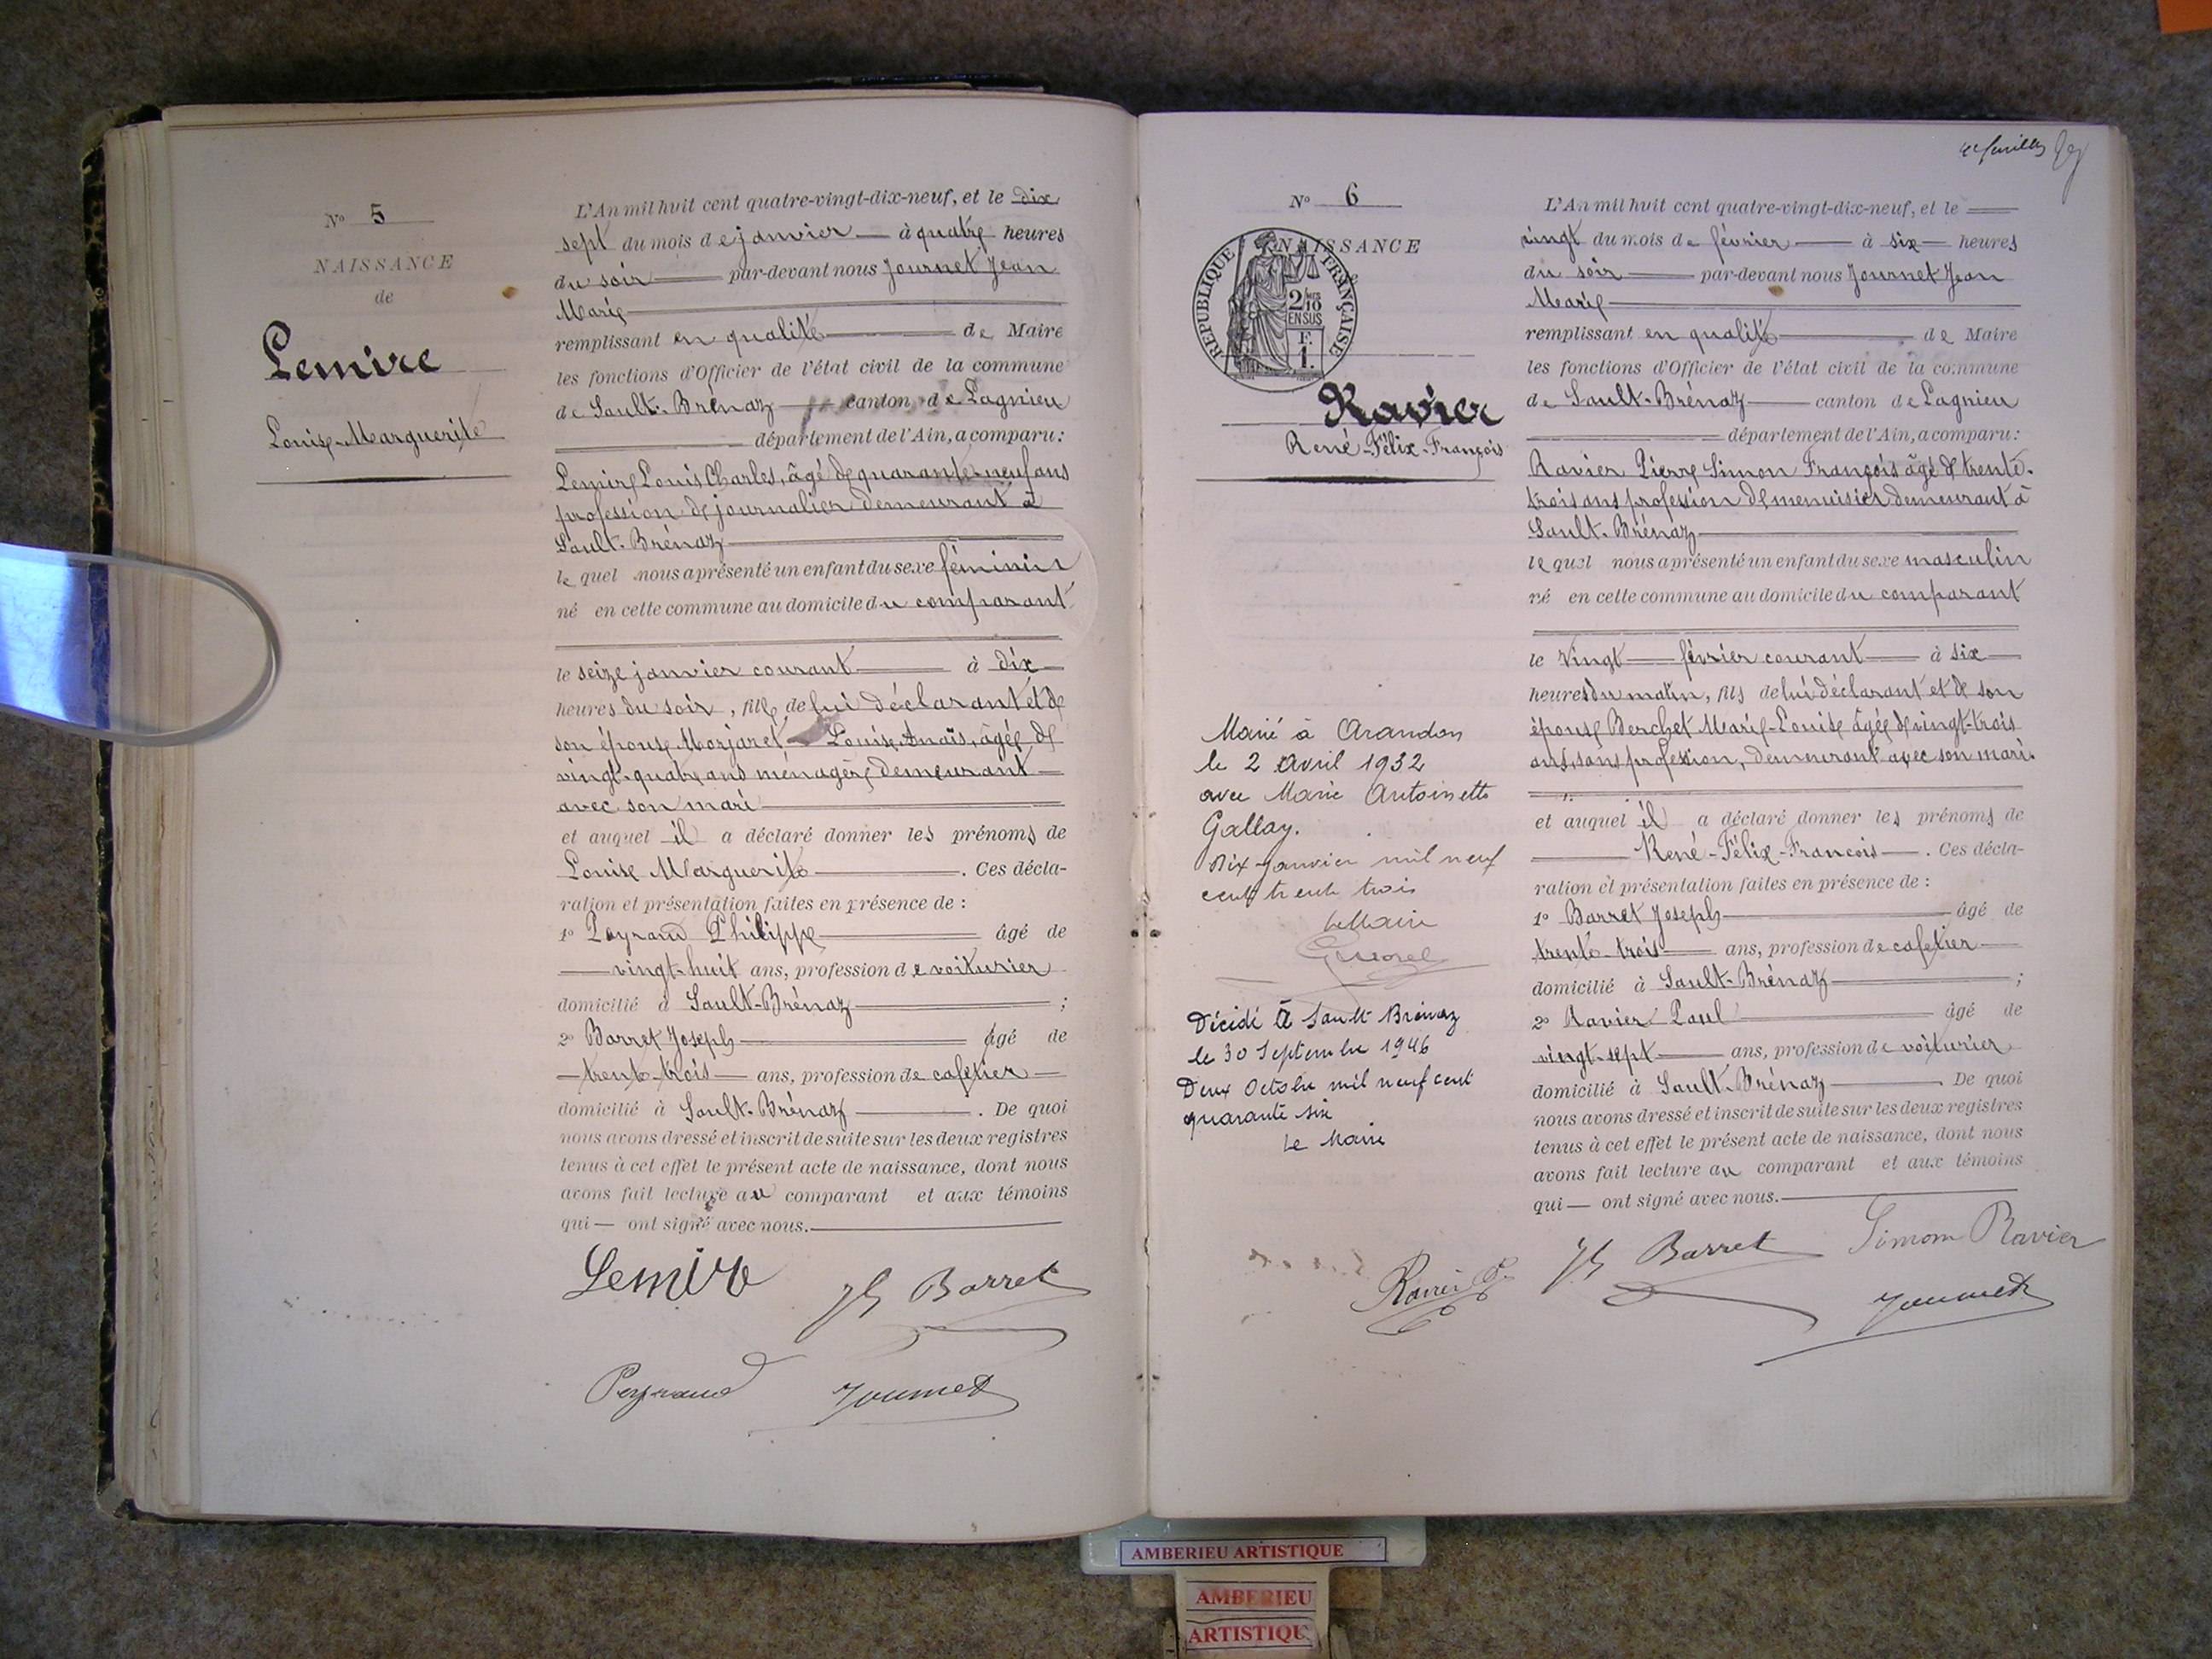 N° 5
NAISSANCE
de
Lemire
Louise-Marguerite
L'An mil huit cent quatre-vingt-dix-neuf, et le dix
sept du mois de janvier à quatre heures
du soir par-devant nous Journet Jean
Marie
remplissant en qualité de Maire
les fonctions d'Officier de l'état civil de la commune
de Sault-Brénaz canton de Lagnieu
département de l'Ain, a comparu :
Lemire Louis Charles, âgé de quarante-neuf ans
profession de journalier demeurant à
Sault-Brénaz
lequel nous a présenté un enfant du sexe féminin
né en cette commune au domicile du comparant
le seize janvier courant à dix
heures du soir, fille de lui déclarant et de
son épouse Morjaret Louise Anaïs, âgée de
vingt-quatre ans ménagère demeurant
avec son mari
et auquel il a déclaré donner les prénoms de
Louise Marguerite . Ces décla-
ration et présentation faites en présence de :
1° Peyraud Philippe âgé de
vingt-huit ans, profession de voiturier
domicilié à Sault-Brénaz ;
2° Barret Joseph âgé de
trente-trois ans, profession de cafetier
domicilié à Sault-Brénaz . De quoi
nous avons dressé et inscrit de suite sur les deux registres
tenus à cet effet le présent acte de naissance, dont nous
avons fait lecture au comparant et aux témoins
qui ont signé avec nous.
Lemire Jh Barret
Peyraud Journet
N° 6
NAISSANCE
REPUBLIQUE FRANÇAISE
2/10 MES
EN SUS
F.
1.
Ravier
René-Félix-François
Marié à Arandon
le 2 Avril 1932
avec Marie Antoinette
Gallay.
Dix janvier mil neuf
cent trente trois
Le Maire
Décédé à Sault Brénaz
le 30 Septembre 1946
Deux Octobre mil neuf cent
quarante six
Le Maire
L'An mil huit cent quatre-vingt-dix-neuf, et le
vingt du mois de février à six heures
du soir par-devant nous Journet Jean
Marie
remplissant en qualité de Maire
les fonctions d'Officier de l'état civil de la commune
de Sault-Brénaz canton de Lagnieu
département de l'Ain, a comparu :
Ravier Pierre Simon François âgé de trente-
trois ans profession de menuisier demeurant à
Sault-Brénaz
lequel nous a présenté un enfant du sexe masculin
né en cette commune au domicile du comparant
le vingt février courant à six
heures du matin, fils de lui déclarant et de son
épouse Berchet Marie-Louise âgée de vingt-trois
ans, sans profession, demeurant avec son mari.
et auquel il a déclaré donner les prénoms de
René-Félix-François . Ces décla-
ration et présentation faites en présence de :
1° Barret Joseph âgé de
trente-trois ans, profession de cafetier
domicilié à Sault-Brénaz ;
2° Ravier Paul âgé de
vingt-sept ans, profession de voiturier
domicilié à Sault-Brénaz . De quoi
nous avons dressé et inscrit de suite sur les deux registres
tenus à cet effet le présent acte de naissance, dont nous
avons fait lecture au comparant et aux témoins
qui ont signé avec nous.
Ravier P. Jh Barret Simon Ravier
Journet
AMBERIEU ARTISTIQUE
AMBERIEU
ARTISTIQU